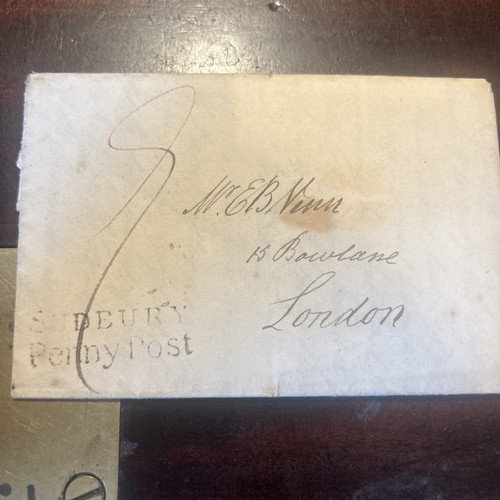 Mr. E B Venn
15 Bowlane
London
SUDBURY
Penny Post